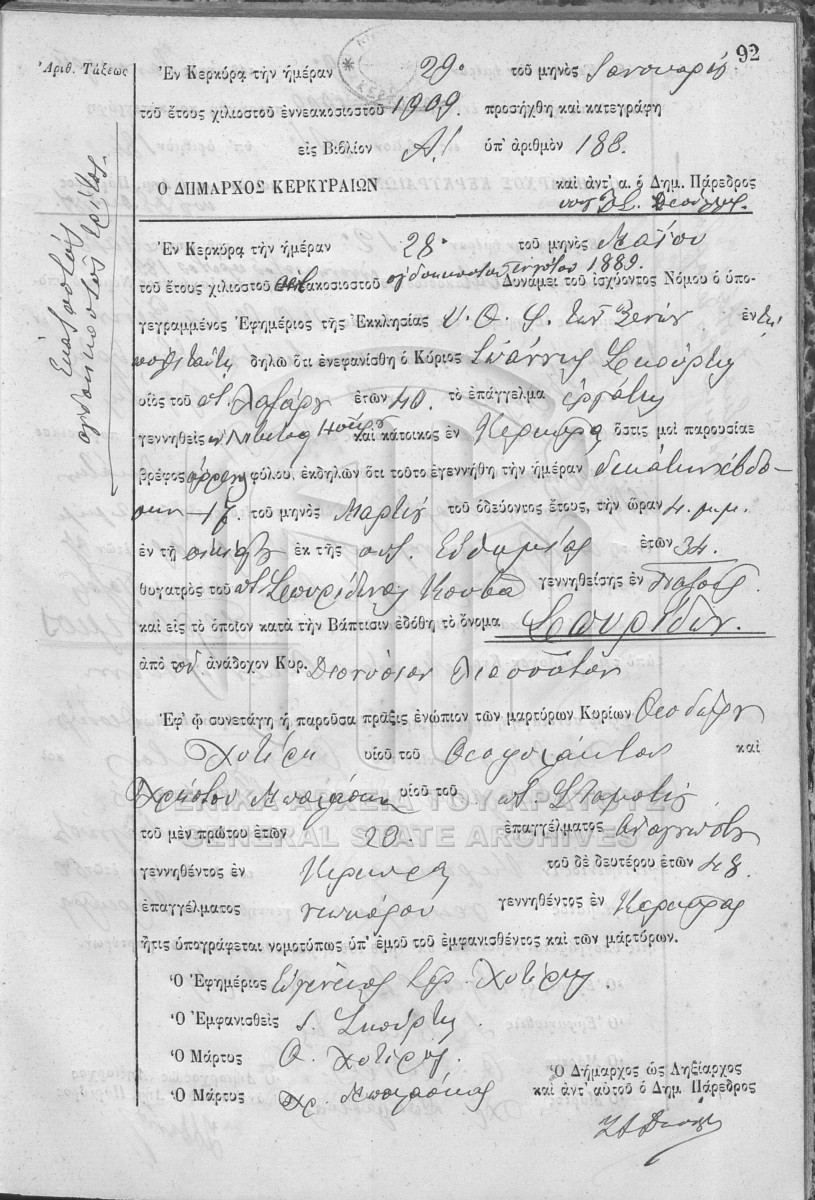 92
Ἀριθ. Τάξεως
Ἐν Κερκύρᾳ τὴν ἡμέραν 29 τοῦ μηνὸς Ἰανουαρίου
τοῦ ἔτους χιλιοστοῦ ἐννεακοσιοστοῦ 1909 προσήχθη καὶ κατεγράφη
εἰς Βιβλίον Α! ὑπ' ἀριθμὸν 188.
Ο ΔΗΜΑΡΧΟΣ ΚΕΡΚΥΡΑΙΩΝ καὶ ἀντ' α. ὁ Δημ. Πάρεδρος
Ἑκατοστὸς
ὀγδοηκοστὸς τρίτος.
Ἐν Κερκύρᾳ τὴν ἡμέραν 28 τοῦ μηνὸς Μαΐου
τοῦ ἔτους χιλιοστοῦ ὀγδοηκοστοῦ ἐνάτου 1889. Δυνάμει τοῦ ἰσχύοντος Νόμου ὁ ὑπο-
γεγραμμένος Ἐφημέριος τῆς Ἐκκλησίας Υ. Θ. τῶν Ξένων ἐν
δηλῶ ὅτι ἐνεφανίσθη ὁ Κύριος Ἰωάννης Σκούρτης
υἱὸς τοῦ ποτ. Λαζάρου ἐτῶν 40. τὸ ἐπάγγελμα ἐργάτης
γεννηθεὶς καὶ κάτοικος ἐν Κερκύρᾳ ὅστις μοὶ παρουσίασε
βρέφος ἄρρεν φύλου, ἐκδηλῶν ὅτι τοῦτο ἐγεννήθη τὴν ἡμέραν δεκάτην ἑβδό-
μην 17. τοῦ μηνὸς Μαρτίου τοῦ ὁδεύοντος ἔτους, τὴν ὥραν 4. μ.μ.
ἐν τῇ οἰκίᾳ ἐκ τῆς Εὐθυμίας ἐτῶν 34.
θυγατρὸς τοῦ ποτ. Σπυρίδωνος Κουβᾶ γεννηθείσης ἐν Παξοῖς.
καὶ εἰς τὸ ὁποῖον κατὰ τὴν Βάπτισιν ἐδόθη τὸ ὄνομα Σπυρίδων.
ἀπὸ τὸν ἀνάδοχον Κυρ. Διονύσιον
Ἐφ' ᾧ συνετάγη ἡ παροῦσα πρᾶξις ἐνώπιον τῶν μαρτύρων Κυρίων Θεοδώρου
Χυτίρη υἱοῦ τοῦ Θεοφυλάκτου καὶ
Χρήστου υἱοῦ τοῦ ποτ. Σταματίου
τοῦ μὲν πρώτου ἐτῶν 20. ἐπαγγέλματος ἀναγνώστης
γεννηθέντος ἐν Κερκύρᾳ τοῦ δὲ δευτέρου ἐτῶν 48.
ἐπαγγέλματος νεωκόρου γεννηθέντος ἐν Κερκύρᾳ
ἥτις ὑπογράφεται νομοτύπως ὑπ' ἐμοῦ τοῦ ἐμφανισθέντος καὶ τῶν μαρτύρων.
Ὁ Ἐφημέριος Εὐγένιος Ἱερ. Χυτίρης
Ὁ Ἐμφανισθεὶς Ι. Σκούρτης
Ὁ Μάρτυς Θ. Χυτίρης.
Ὁ Μάρτυς Χρ.
Ὁ Δήμαρχος ὡς Ληξίαρχος
καὶ ἀντ' αὐτοῦ ὁ Δημ. Πάρεδρος
ΓΕΝΙΚΑ ΑΡΧΕΙΑ ΤΟΥ ΚΡΑΤΟΥΣ
GENERAL STATE ARCHIVES